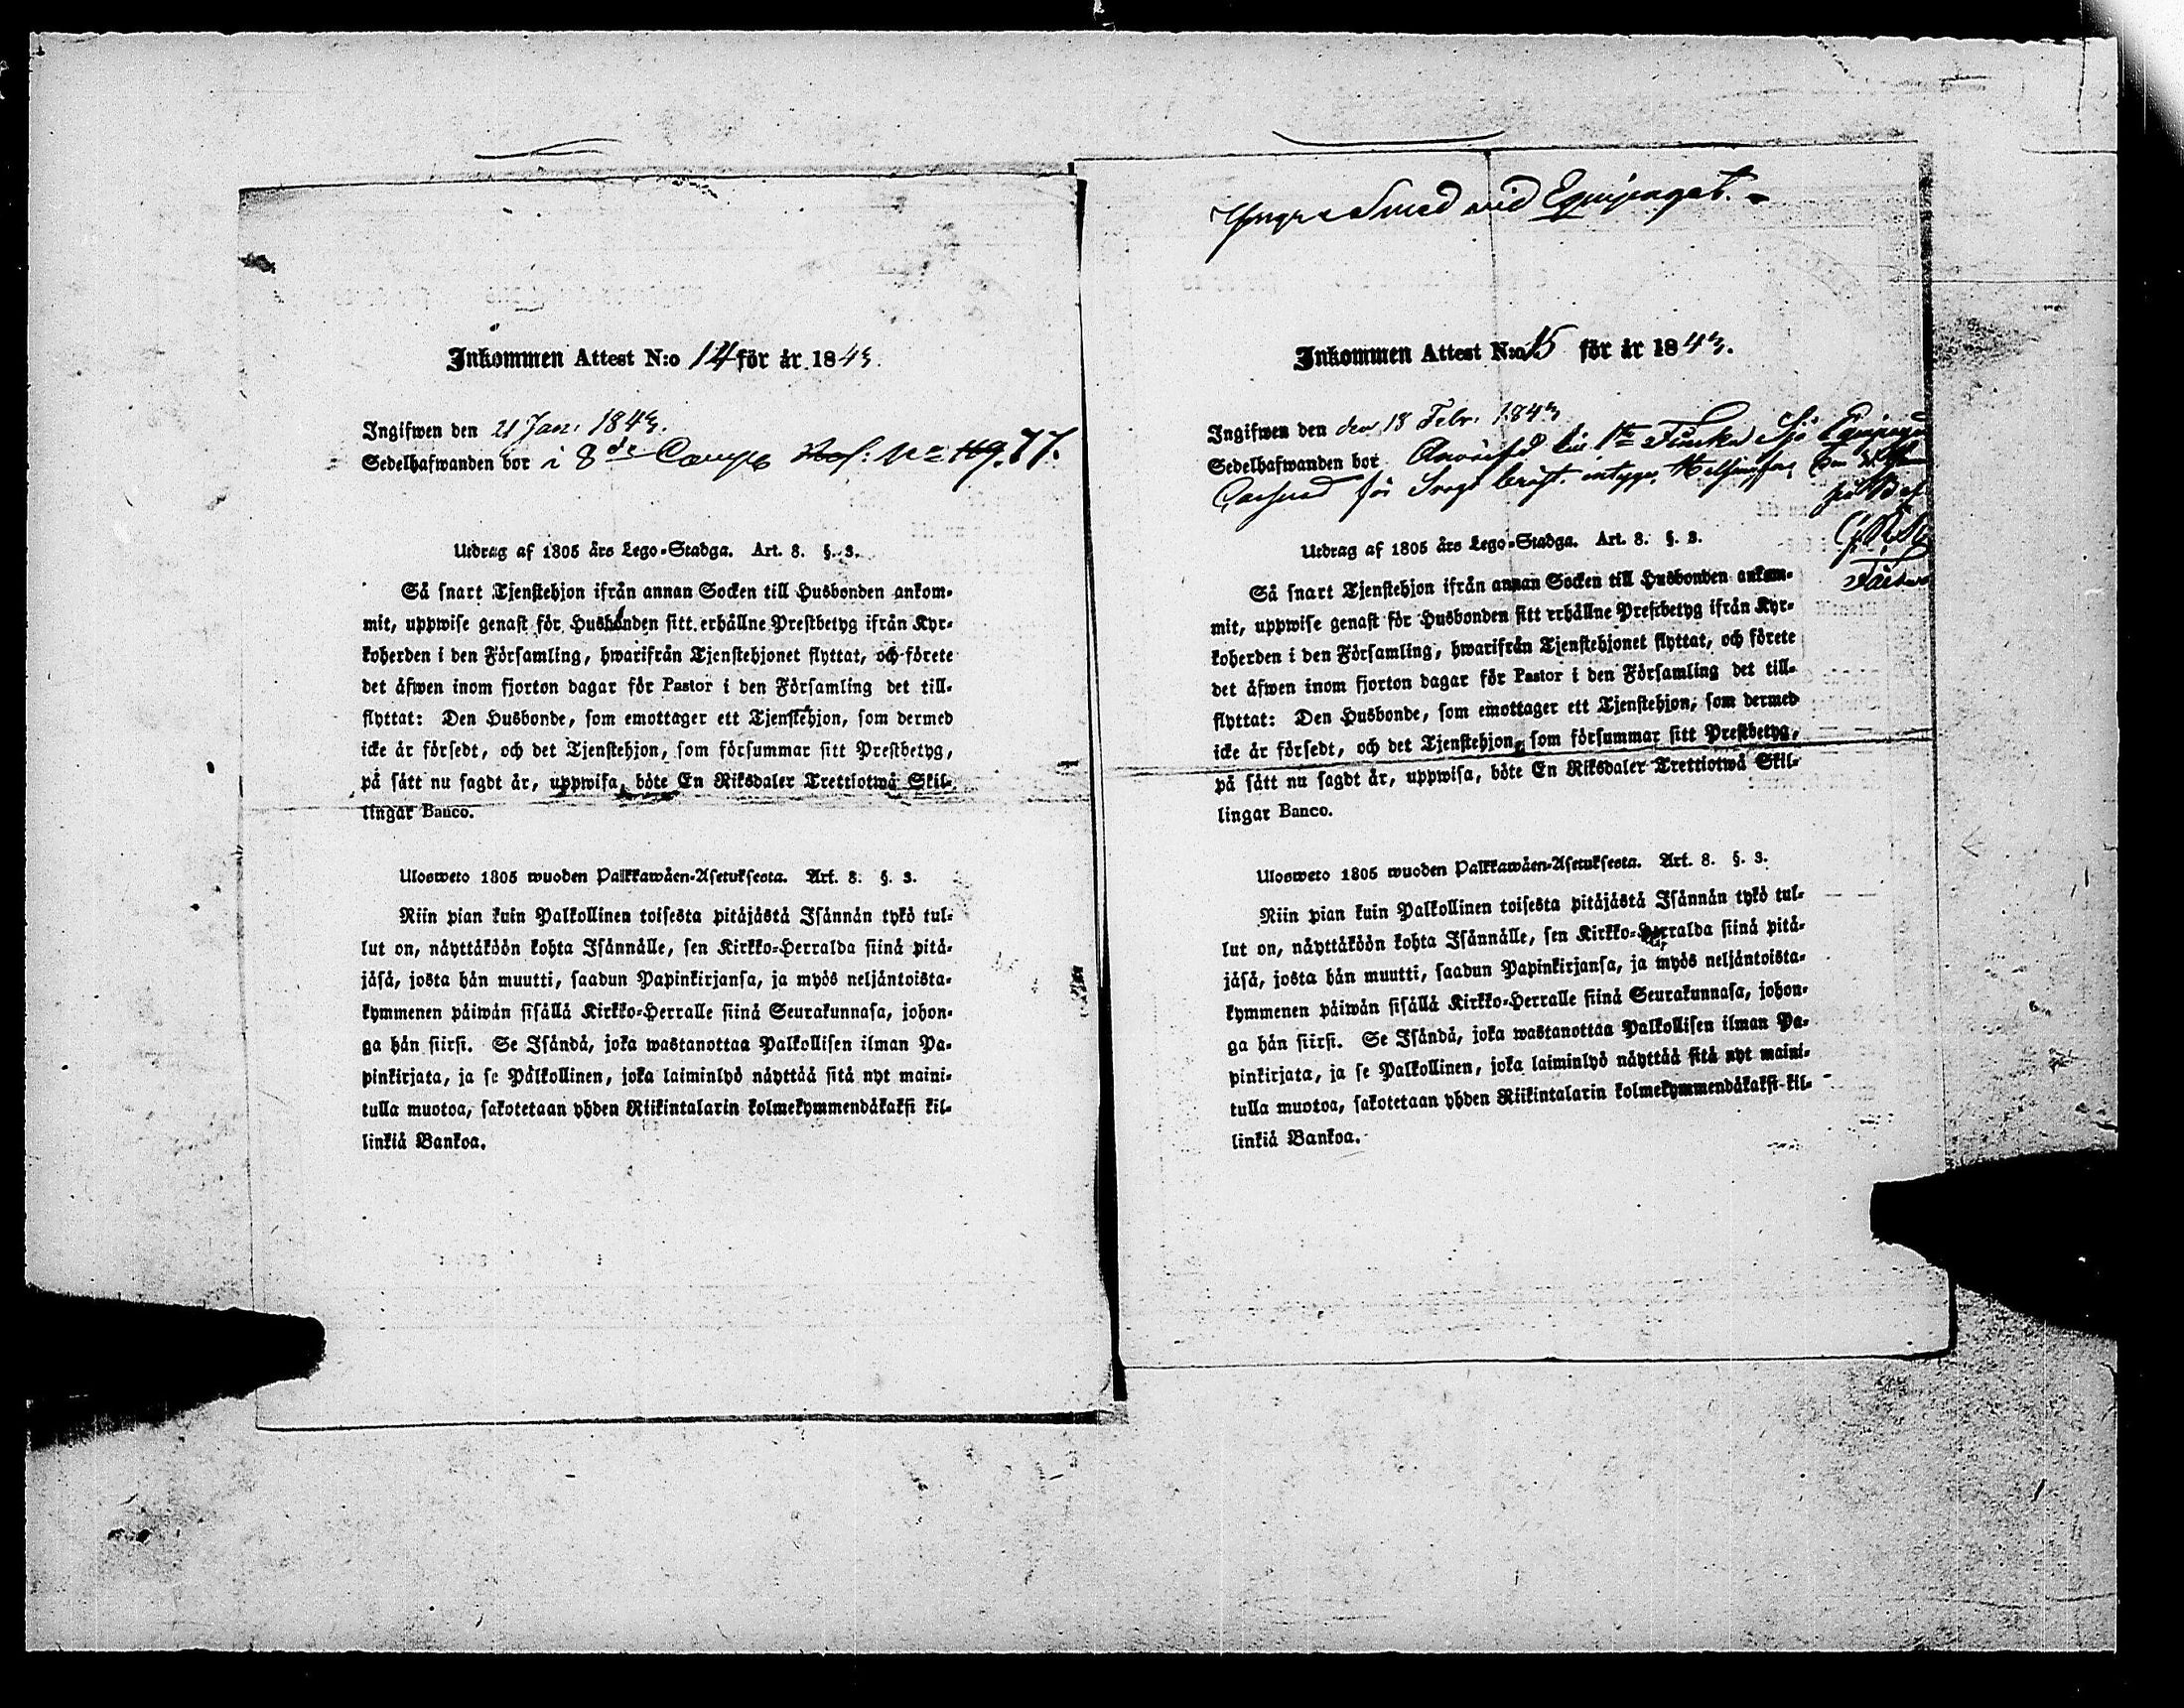 Inkommen Attest N:o 14 för år 1843.
Ingifwen den 21 Jan. 1843.
Sedelhafwanden bor i 8de Comp. No 77.
Utdrag af 1805 års Lego-Stadga. Art. 8. §. 3.
Så snart Tjenstehjon ifrån annan Socken till Husbonden ankom-
mit, uppwise genast för Husbonden sitt erhållne Prestbetyg ifrån Kyr-
koherden i den Församling, hwarifrån Tjenstehjonet flyttat, och förete
det äfwen inom fjorton dagar för Pastor i den Församling det till-
flyttat: Den Husbonde, som emottager ett Tjenstehjon, som dermed
icke är försedt, och det Tjenstehjon, som försummar sitt Prestbetyg,
på sätt nu sagdt är, uppwisa, böte En Riksdaler Trettiotwå Skil-
lingar Banco.
Ulosweto 1805 wuoden Palkkawäen-Asetuksesta. Art. 8. §. 3.
Niin pian kuin Palkollinen toisesta pitäjästä Isännän tykö tul-
lut on, näyttäköön kohta Isännälle, sen Kirkko-Herralda siinä pitä-
jäsä, josta hän muutti, saadun Papinkirjansa, ja myös neljäntoista-
kymmenen päiwän sisällä Kirkko-Herralle siinä Seurakunnasa, johon-
ga hän siirsi. Se Isändä, joka wastanottaa Palkollisen ilman Pa-
pinkirjata, ja se Palkollinen, joka laiminlyö näyttää sitä nyt maini-
tulla muotoa, sakotetaan yhden Riikintalarin kolmekymmendäkaksi kil-
linkiä Bankoa.
Yngre Smed vid Equipaget.
Inkommen Attest N:o 15 för år 1843.
Ingifwen den den 18 Febr. 1843
Sedelhafwanden bor till 1sta Finska Sjö Equipaget
för intygar Helsingfors den
Utdrag af 1805 års Lego-Stadga. Art. 8. §. 3.
Så snart Tjenstehjon ifrån annan Socken till Husbonden ankom-
mit, uppwise genast för Husbonden sitt erhållne Prestbetyg ifrån Kyr-
koherden i den Församling, hwarifrån Tjenstehjonet flyttat, och förete
det äfwen inom fjorton dagar för Pastor i den Församling det till-
flyttat: Den Husbonde, som emottager ett Tjenstehjon, som dermed
icke är försedt, och det Tjenstehjon, som försummar sitt Prestbetyg,
på sätt nu sagdt är, uppwisa, böte En Riksdaler Trettiotwå Skil-
lingar Banco.
Ulosweto 1805 wuoden Palkkawäen-Asetuksesta. Art. 8. §. 3.
Niin pian kuin Palkollinen toisesta pitäjästä Isännän tykö tul-
lut on, näyttäköön kohta Isännälle, sen Kirkko-Herralda siinä pitä-
jäsä, josta hän muutti, saadun Papinkirjansa, ja myös neljäntoista-
kymmenen päiwän sisällä Kirkko-Herralle siinä Seurakunnasa, johon-
ga hän siirsi. Se Isändä, joka wastanottaa Palkollisen ilman Pa-
pinkirjata, ja se Palkollinen, joka laiminlyö näyttää sitä nyt maini-
tulla muotoa, sakotetaan yhden Riikintalarin kolmekymmendäkaksi kil-
linkiä Bankoa.